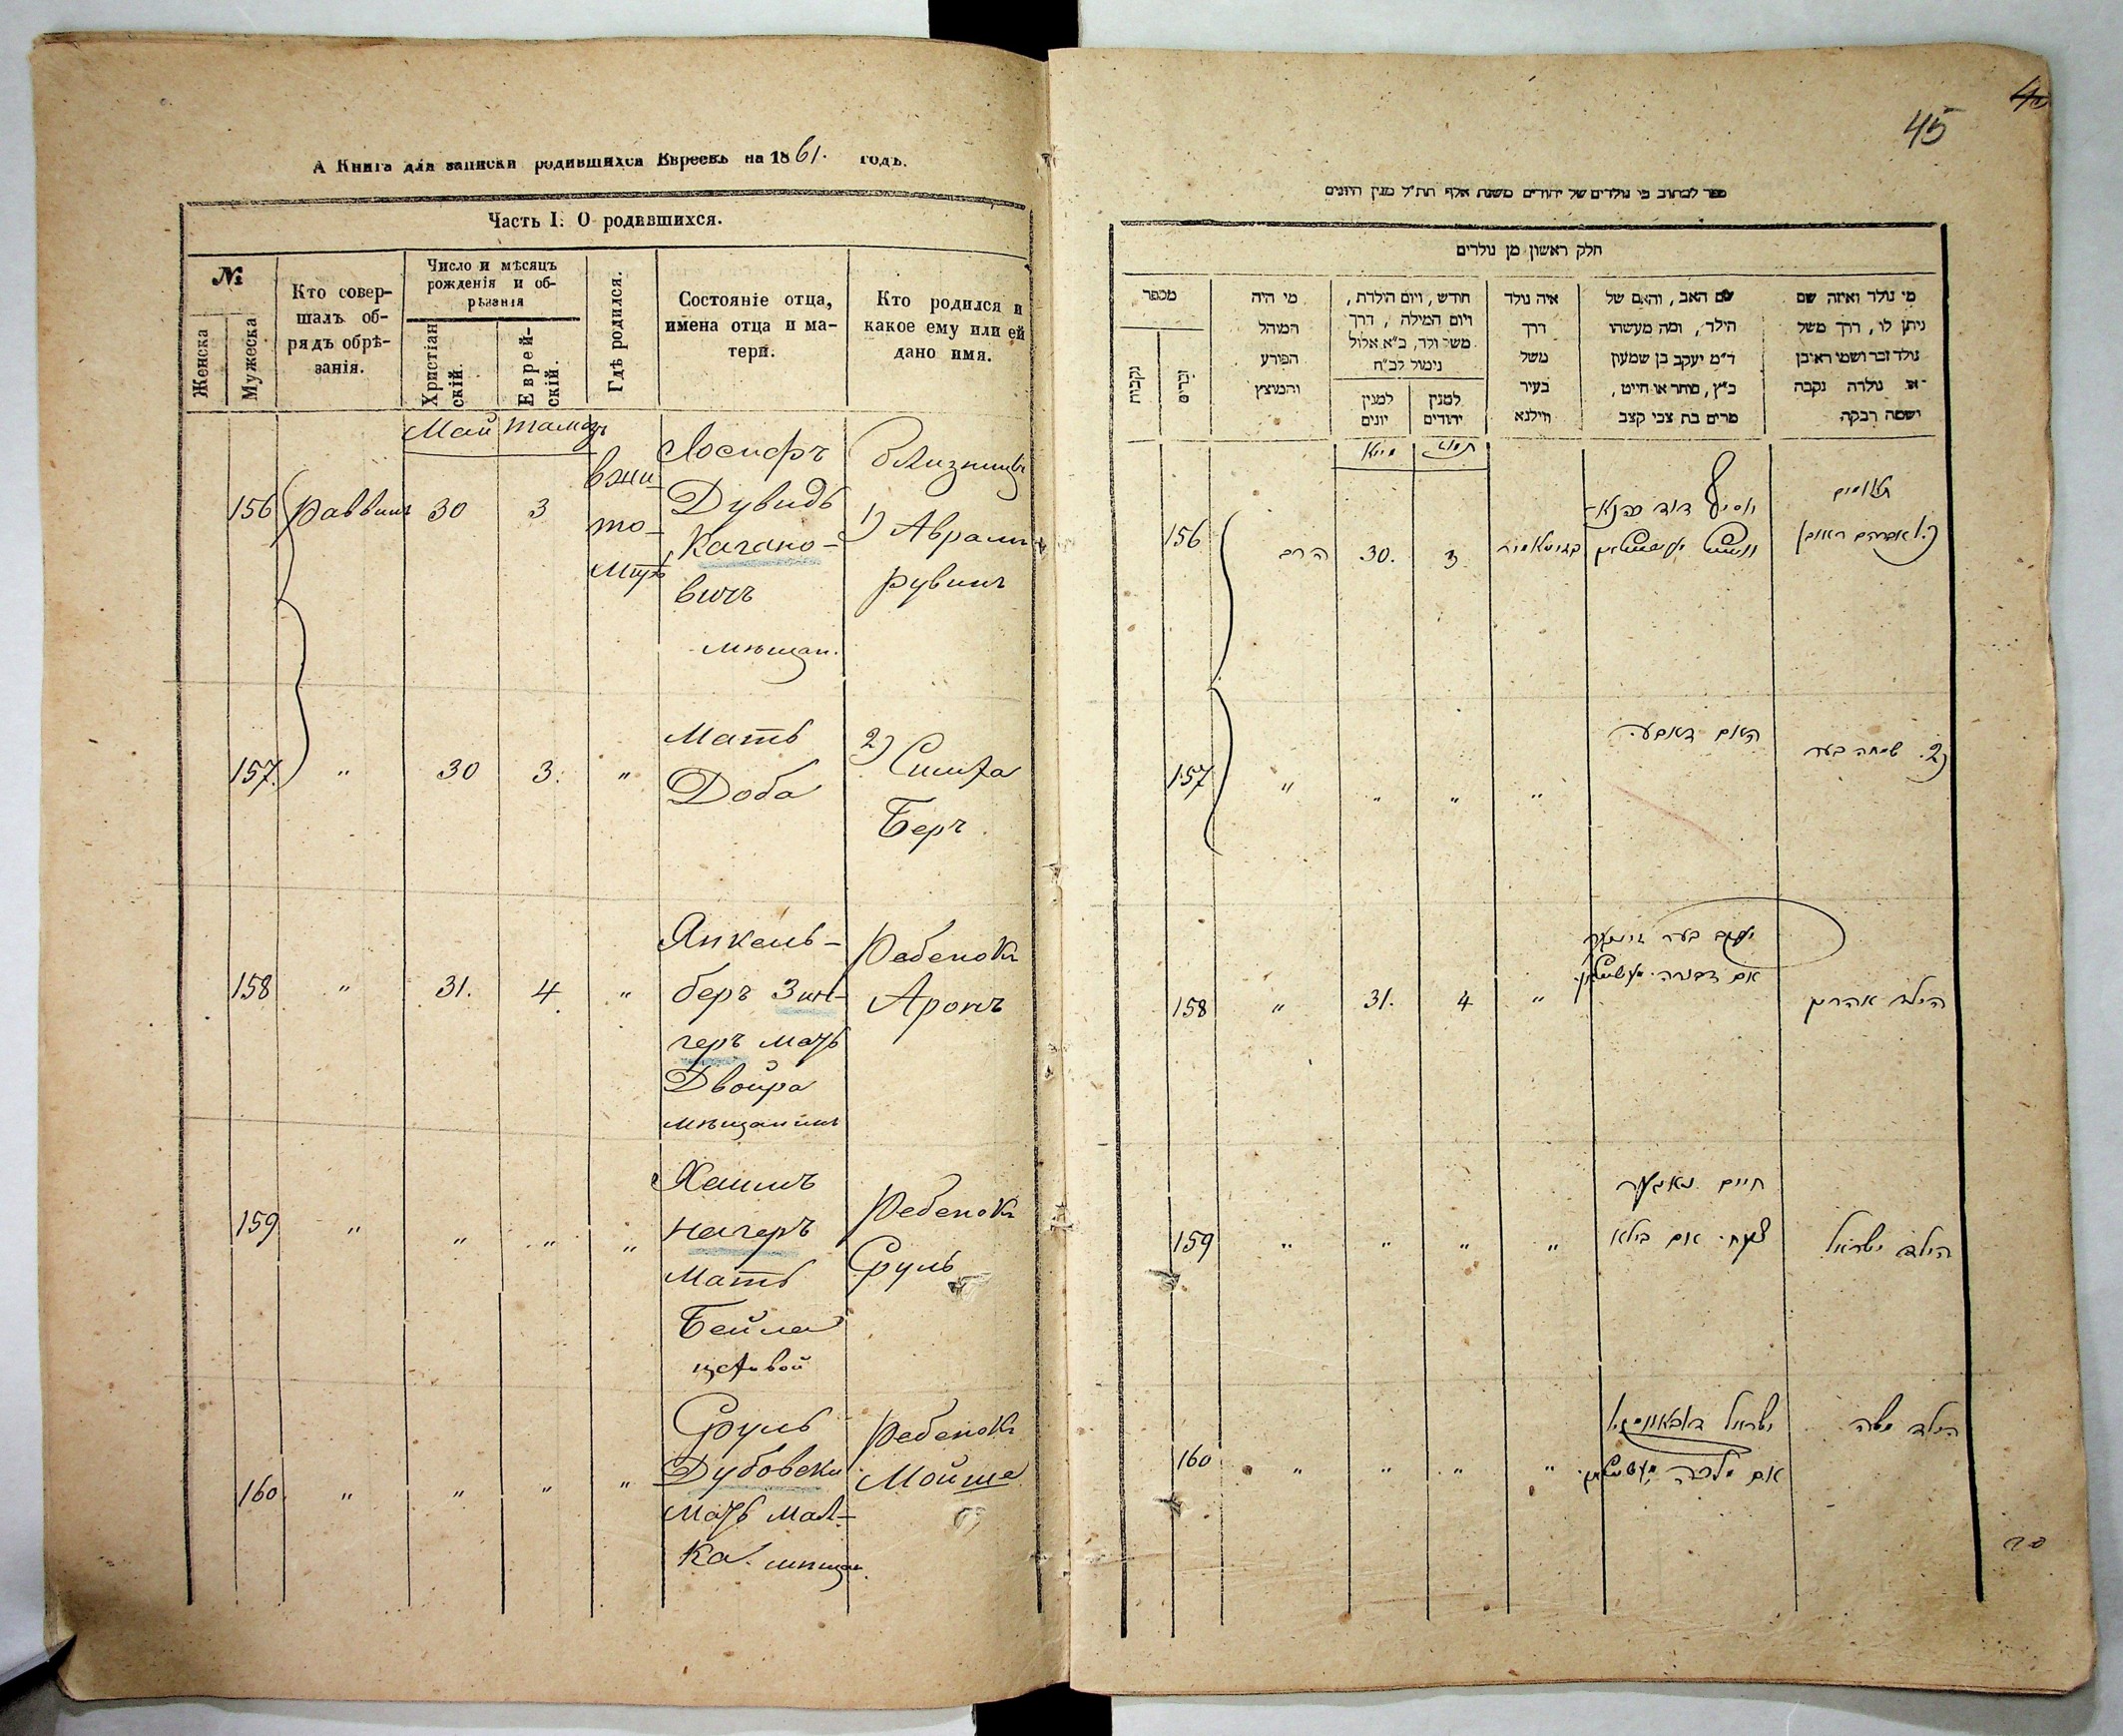 А Книга для записки родившихся Евреевъ на 1861. годъ.
Часть I. О родившихся.
№
Женска
Мужеска
Кто совер-
шалъ об-
рядъ обрѣ-
занія.
Число и мѣсяцъ
рожденія и об-
рѣзанія
Христіан
скій.
Еврей-
скій.
Гдѣ родился.
Состояніе отца,
имена отца и ма-
тери.
Кто родился и
какое ему или ей
дано имя.
Май
156 Раввинъ 30 3
Іосифъ
Дувидъ
Кагано-
вичъ
мѣщан.
1) Аврамъ
Рувинъ
157. " 30 3. "
Мать
Доба
2) Симха
Беръ
158 " 31. 4 "
Янкель-
беръ Зин-
геръ мать
Двойра
мѣщанинъ
Ребенокъ
Аронъ
159 " " " "
Хаимъ
Нагеръ
Мать
Бейла
цеховой
Ребенокъ
Сруль
160. " " " "
Сруль
Дубовски
мать Мал-
ка. мѣщан.
Ребенокъ
Мойше
45
ספר לכתוב בו נולדים של יהודים משנת אלף תת"ל מנין היונים
חלק ראשון מן נולדים
מי נולד ואיזה שם
ניתן לו, דרך משל
נולד זכר ושמו ראובן
או נולדה נקבה
ושמה רבקה
שם האב, והאם של
הילד, ומה מעשהו
ד"מ יעקב בן שמעון
כ"ץ, סוחר או חייט,
מרים בת צבי קצב
איה נולד
דרך
משל
בעיר
ווילנא
חודש, ויום הולדת,
ויום המילה, דרך
משל ולד, כ"א אלול
נימול לכ"ח
למנין
יהודים
למנין
יונים
מי היה
המוהל
הפורע
והמוצץ
מספר
זכרים
נקבות
תאומים
יוסיף דוד כהנא-
156 הרב 30. 3
האם דאבע.
2. שמחה בער
157 " " " "
יעקב בער זינגער
אם דבורה.
הילד אהרון
158 " 31. 4 "
חיים נאגער
אם ביילא
הילד ישראל
159 " " " "
ישראל דובאווסקי
אם מלכה
הילד משה
160 " " " "